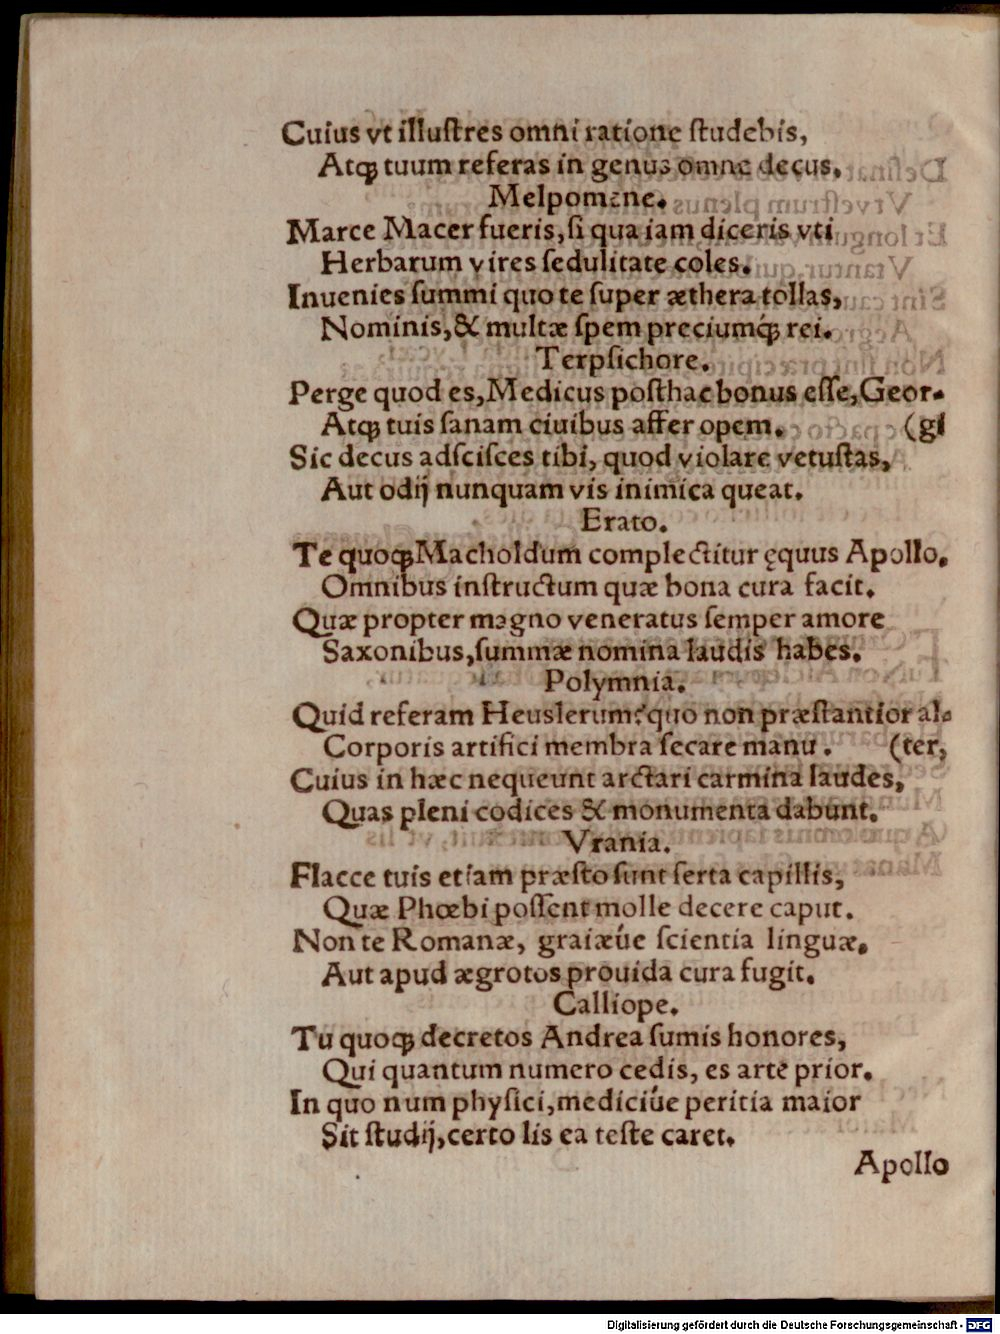 Cuius vt illuſtres omni ratione ſtudebis,
Atq; tuum referas in genus omne decus.
Melpomene.
Marce Macer fueris, ſi qua iam diceris vti
Herbarum vires ſedulitate coles.
Inuenies ſummi quo te ſuper æthera tollas,
Nominis, & multæ ſpem preciumq́; rei.
Terpſichore.
Perge quod es, Medicus poſthac bonus eſſe, Geor-
Atq; tuis ſanam ciuibus affer opem. (gi
Sic decus adſciſces tibi, quod violare vetuſtas,
Aut odij nunquam vis inimica queat.
Erato.
Te quoq; Macholdum complectitur ęquus Apollo.
Omnibus inſtructum quæ bona cura facit.
Quæ propter magno veneratus ſemper amore
Saxonibus, ſummæ nomina laudis habes.
Polymnia.
Quid referam Heuslerum? quo non præſtantior al-
Corporis artifici membra ſecare manu. (ter,
Cuius in hæc nequeunt arctari carmina laudes,
Quas pleni codices & monumenta dabunt.
Vrania.
Flacce tuis etiam præſto ſunt ſerta capillis,
Quæ Phœbi poſſent molle decere caput.
Non te Romanæ, graiæúe ſcientia linguæ.
Aut apud ægrotos prouida cura fugit.
Calliope.
Tu quoq; decretos Andrea ſumis honores,
Qui quantum numero cedis, es arte prior.
In quo num phyſici, mediciúe peritia maior
Sit ſtudij, certo lis ea teſte caret.
Apollo
Digitalisierung gefördert durch die Deutsche Forschungsgemeinschaft - DFG